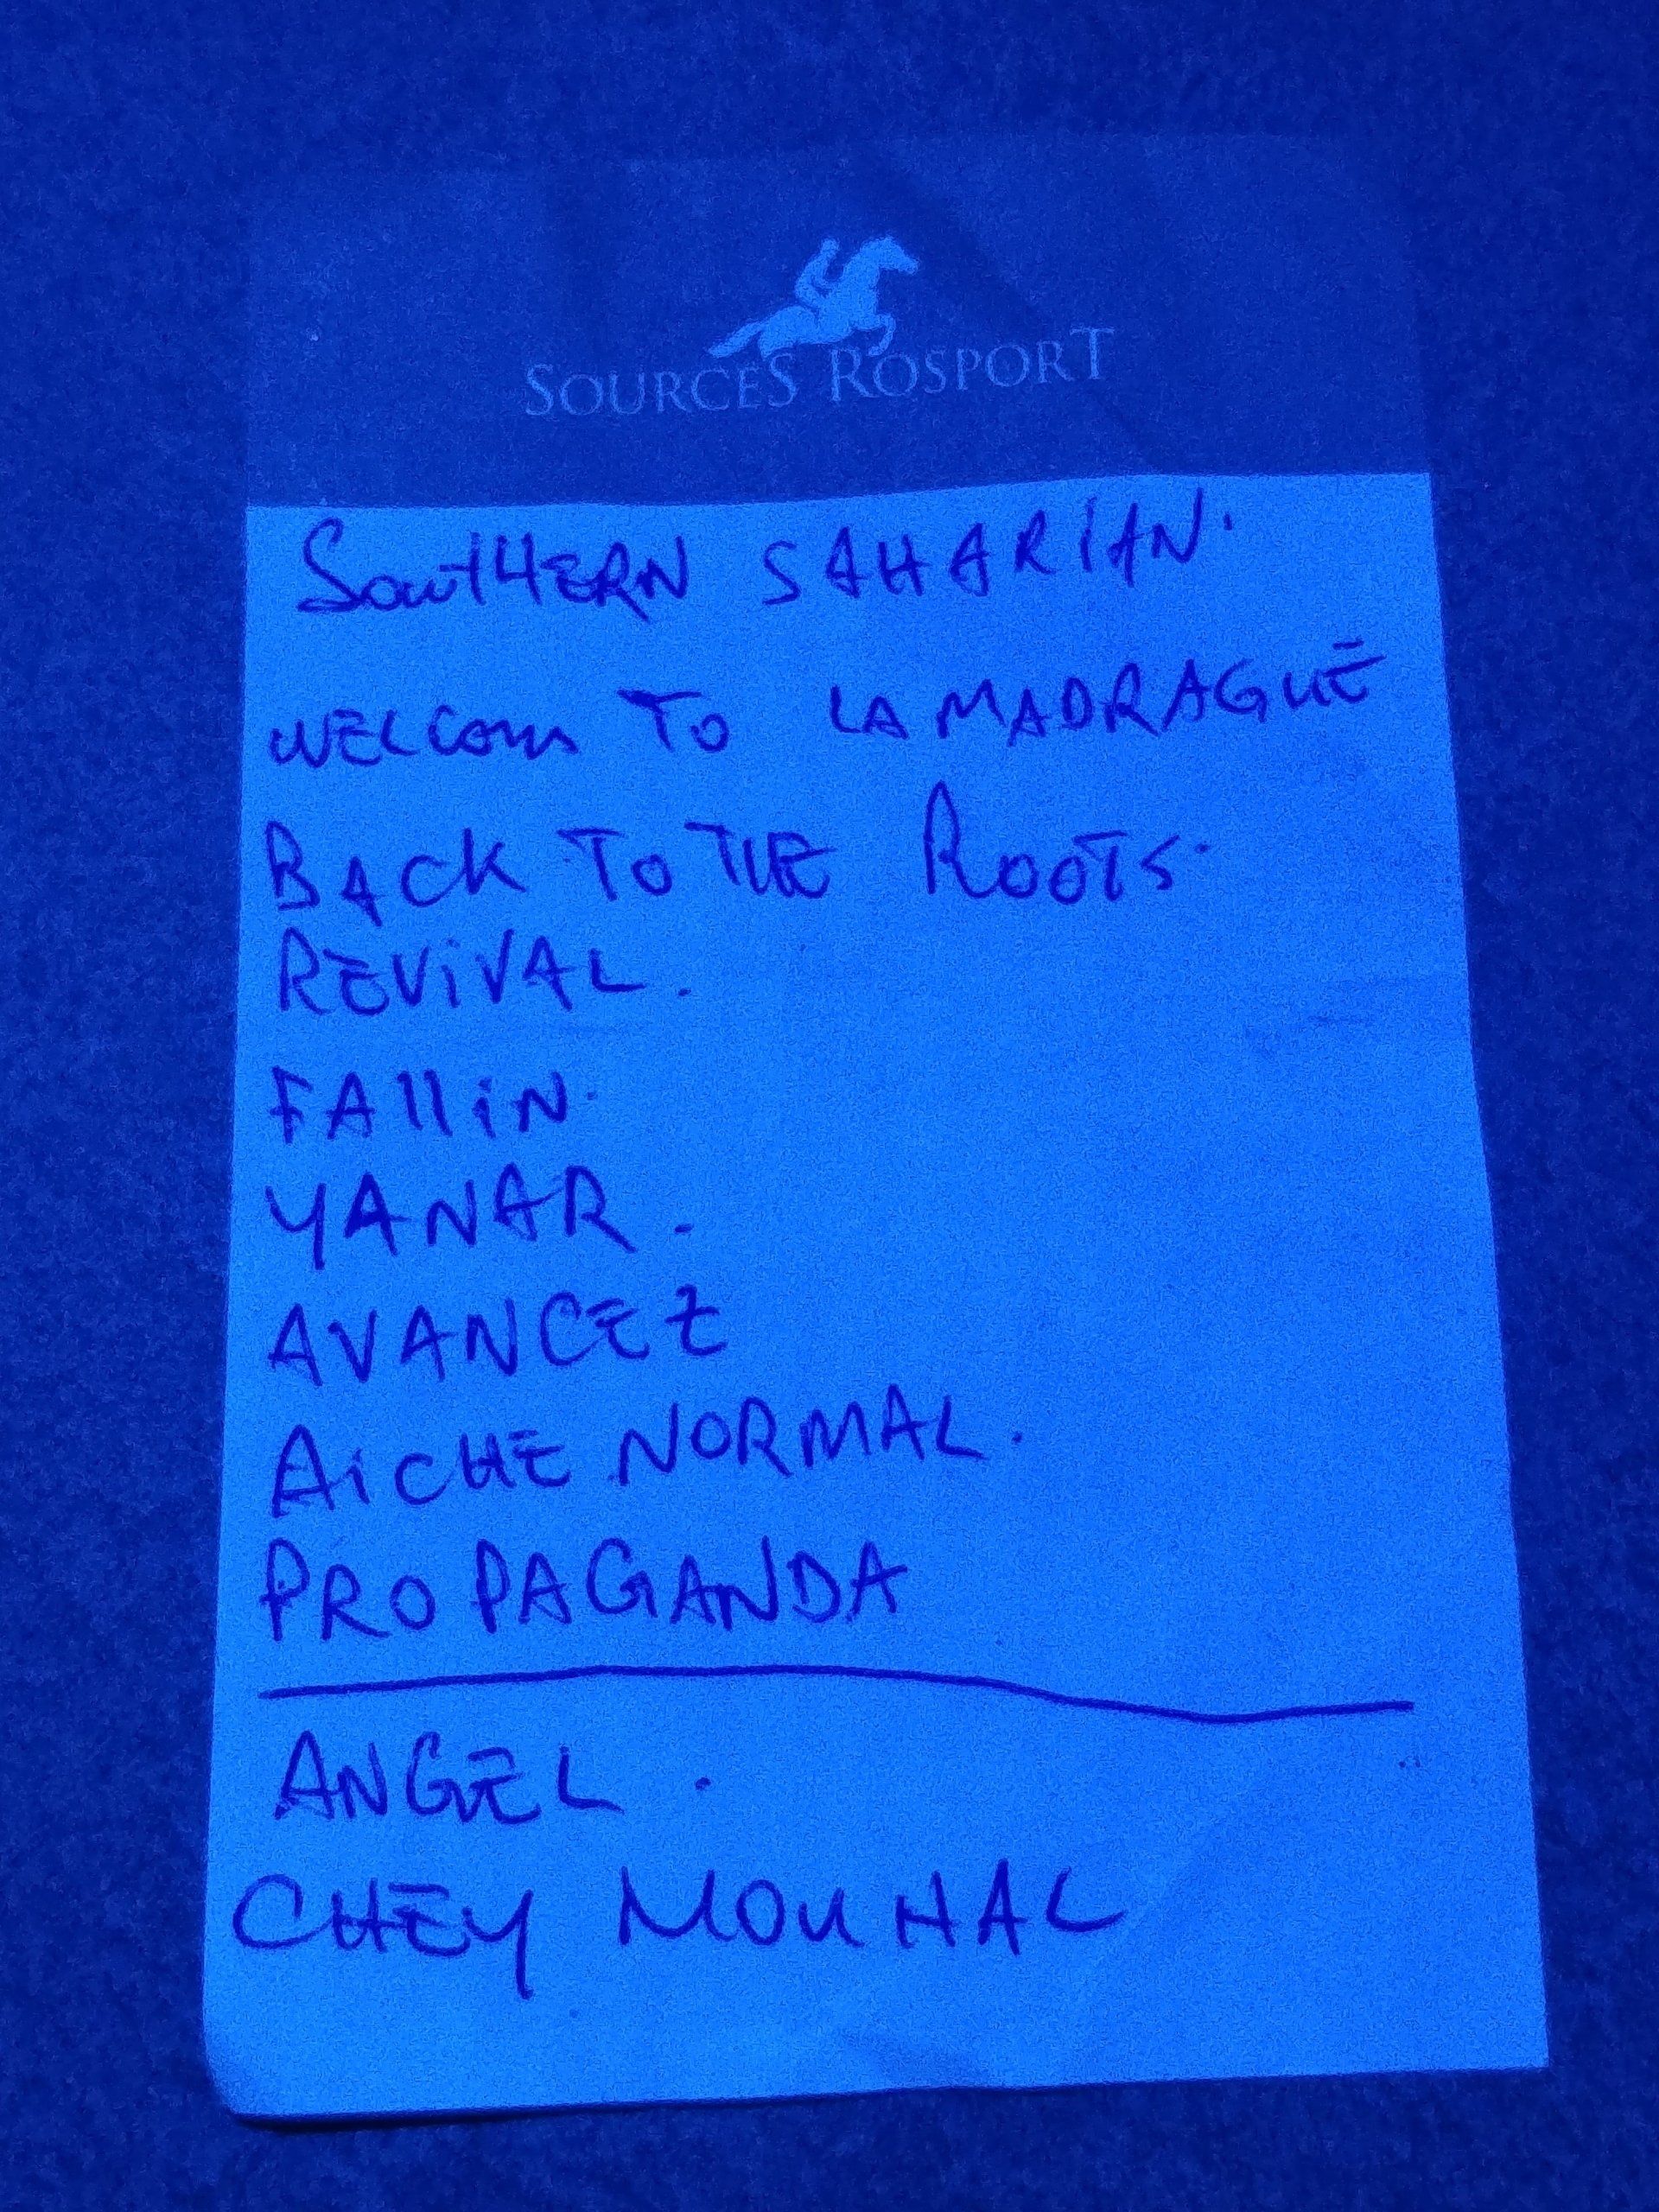 SOURCES ROSPORT
SOUTHERN SAHARIAN.
WELCOM TO LA MADRAGUE
BACK TO THE ROOTS.
REVIVAL.
FALLIN.
YANAR.
AVANCEZ
AICHE NORMAL.
PROPAGANDA
ANGEL.
CHEY MOUHAL